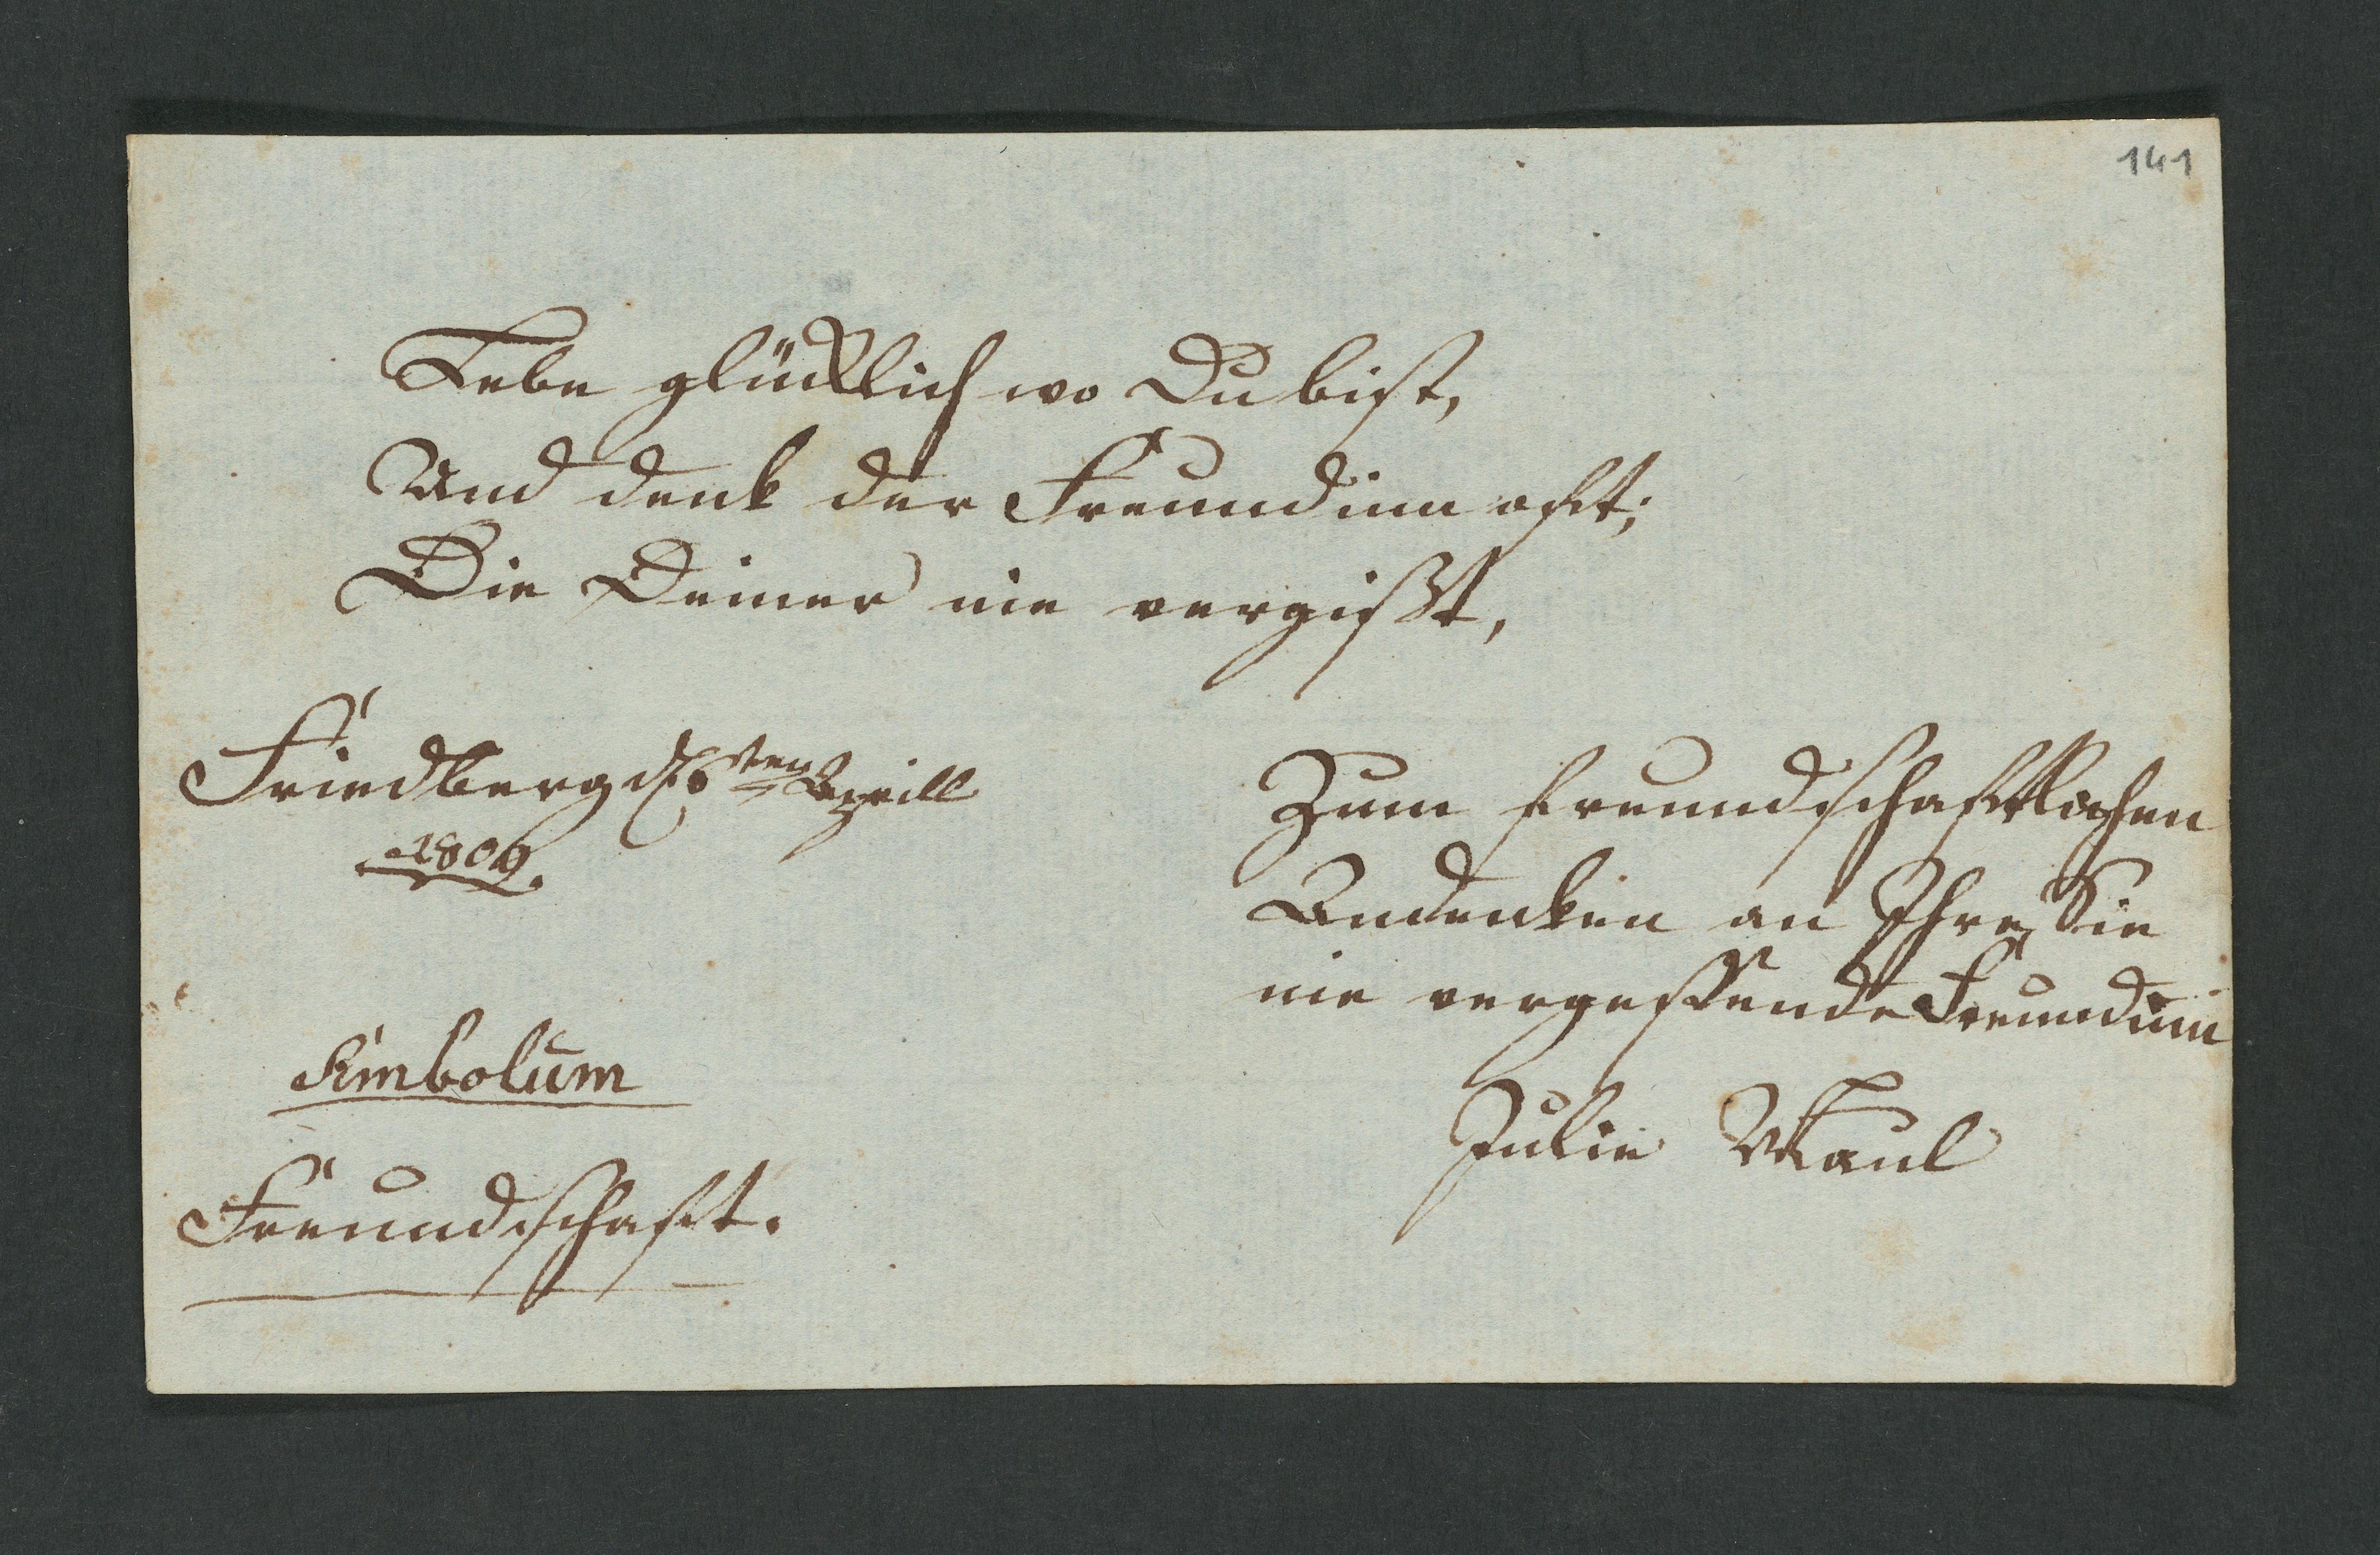 141
Lebe glücklich wo Du bist,
Und denk der Freundinn oft;
Die Deiner nie vergißt,
Friedberg d. 6ten Aprill
1809.
Zum freundschaftlichen
Andenken an Ihre, Sie
nie vergessende Freundinn
Julie Maul
Simbolum
Freundschaft.